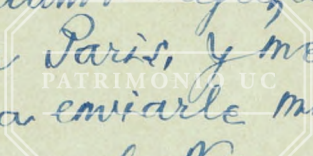 Paris, y me
PATRIMONIO UC
a enviarle m